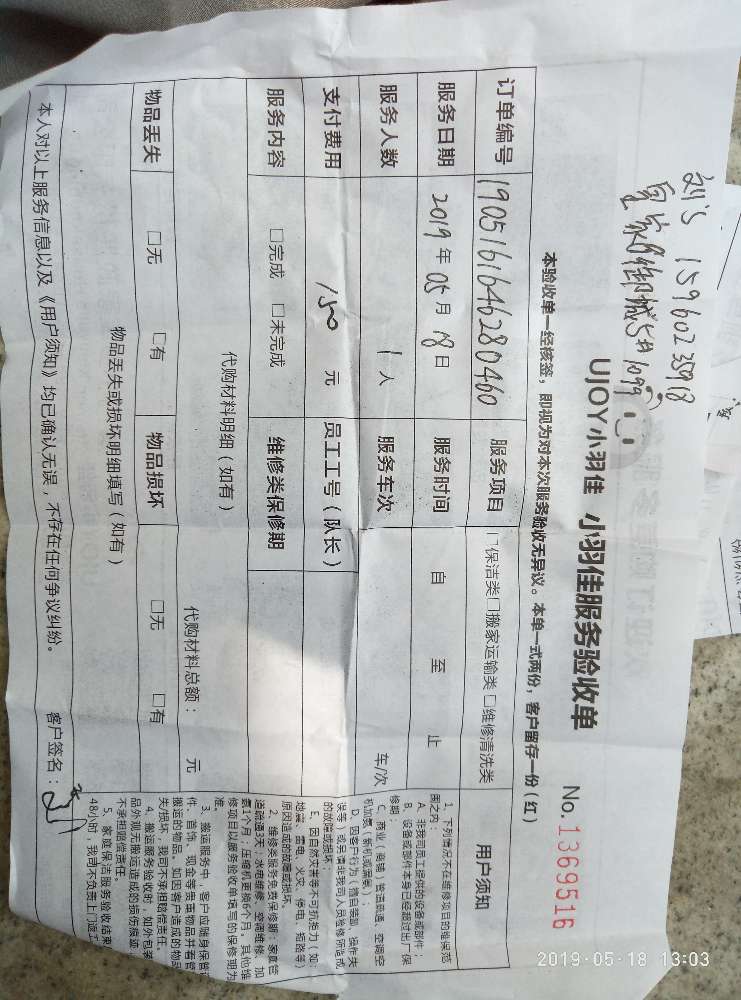 刘's 15960235918
皇家御城5#1099
UJOY小羽佳 小羽佳服务验收单 No.1369516
本验收单一经核签，即视为对本次服务验收无异议。本单一式两份，客户留存一份（红）
订单编号 1905161646280460 服务项目 □保洁类□搬家运输类□维修清洗类 用户须知
服务日期 2019年05月18日 服务时间 自 至 止
服务人数 1人 服务车次 车/次
支付费用 150元 员工工号（队长）
服务内容 □完成 □未完成 维修类保修期
代购材料明细（如有）
代购材料总额： 元
物品丢失 □无 □有 物品损坏 □无 □有
物品丢失或损坏明细填写（如有）
本人对以上服务信息以及《用户须知》均已确认无误，不存在任何争议纠纷。 客户签名：
1、下列情况不在维修项目的维保范
围之内：
A、非我司员工提供的设备或部件；
B、设备或部件本身已经超过出厂保
修期；
C、商业（商铺）管道疏通、空调空
机加氨（新机或漏氨）；
D、因客户行为（擅自装卸、操作失
误等）或邀请非我司人员维修所造成
的故障或损坏；
E、因自然灾害等不可抗拒力（如：
地震、雷电、火灾、停电、短路等）
原因造成的故障或损坏。
2、维修类服务免费保修期：家庭管
道疏通3天；水电维修、空调维修、加
氨1个月；压缩机更换6个月，其他维
修项目以服务验收单填写的保修期为
准。
3、搬运服务中，客户应随身保管证
件、首饰、现金等贵重物品并看管
搬运的物品。如因客户造成的物品
失/损坏，我司不承担赔偿责任。
4、搬运服务验收时，如外包装
品外观无搬运造成的损伤痕迹
不承担赔偿责任。
5、家庭保洁服务验收结束
48小时，我司不负责上门返工
2019-05-18 13:03